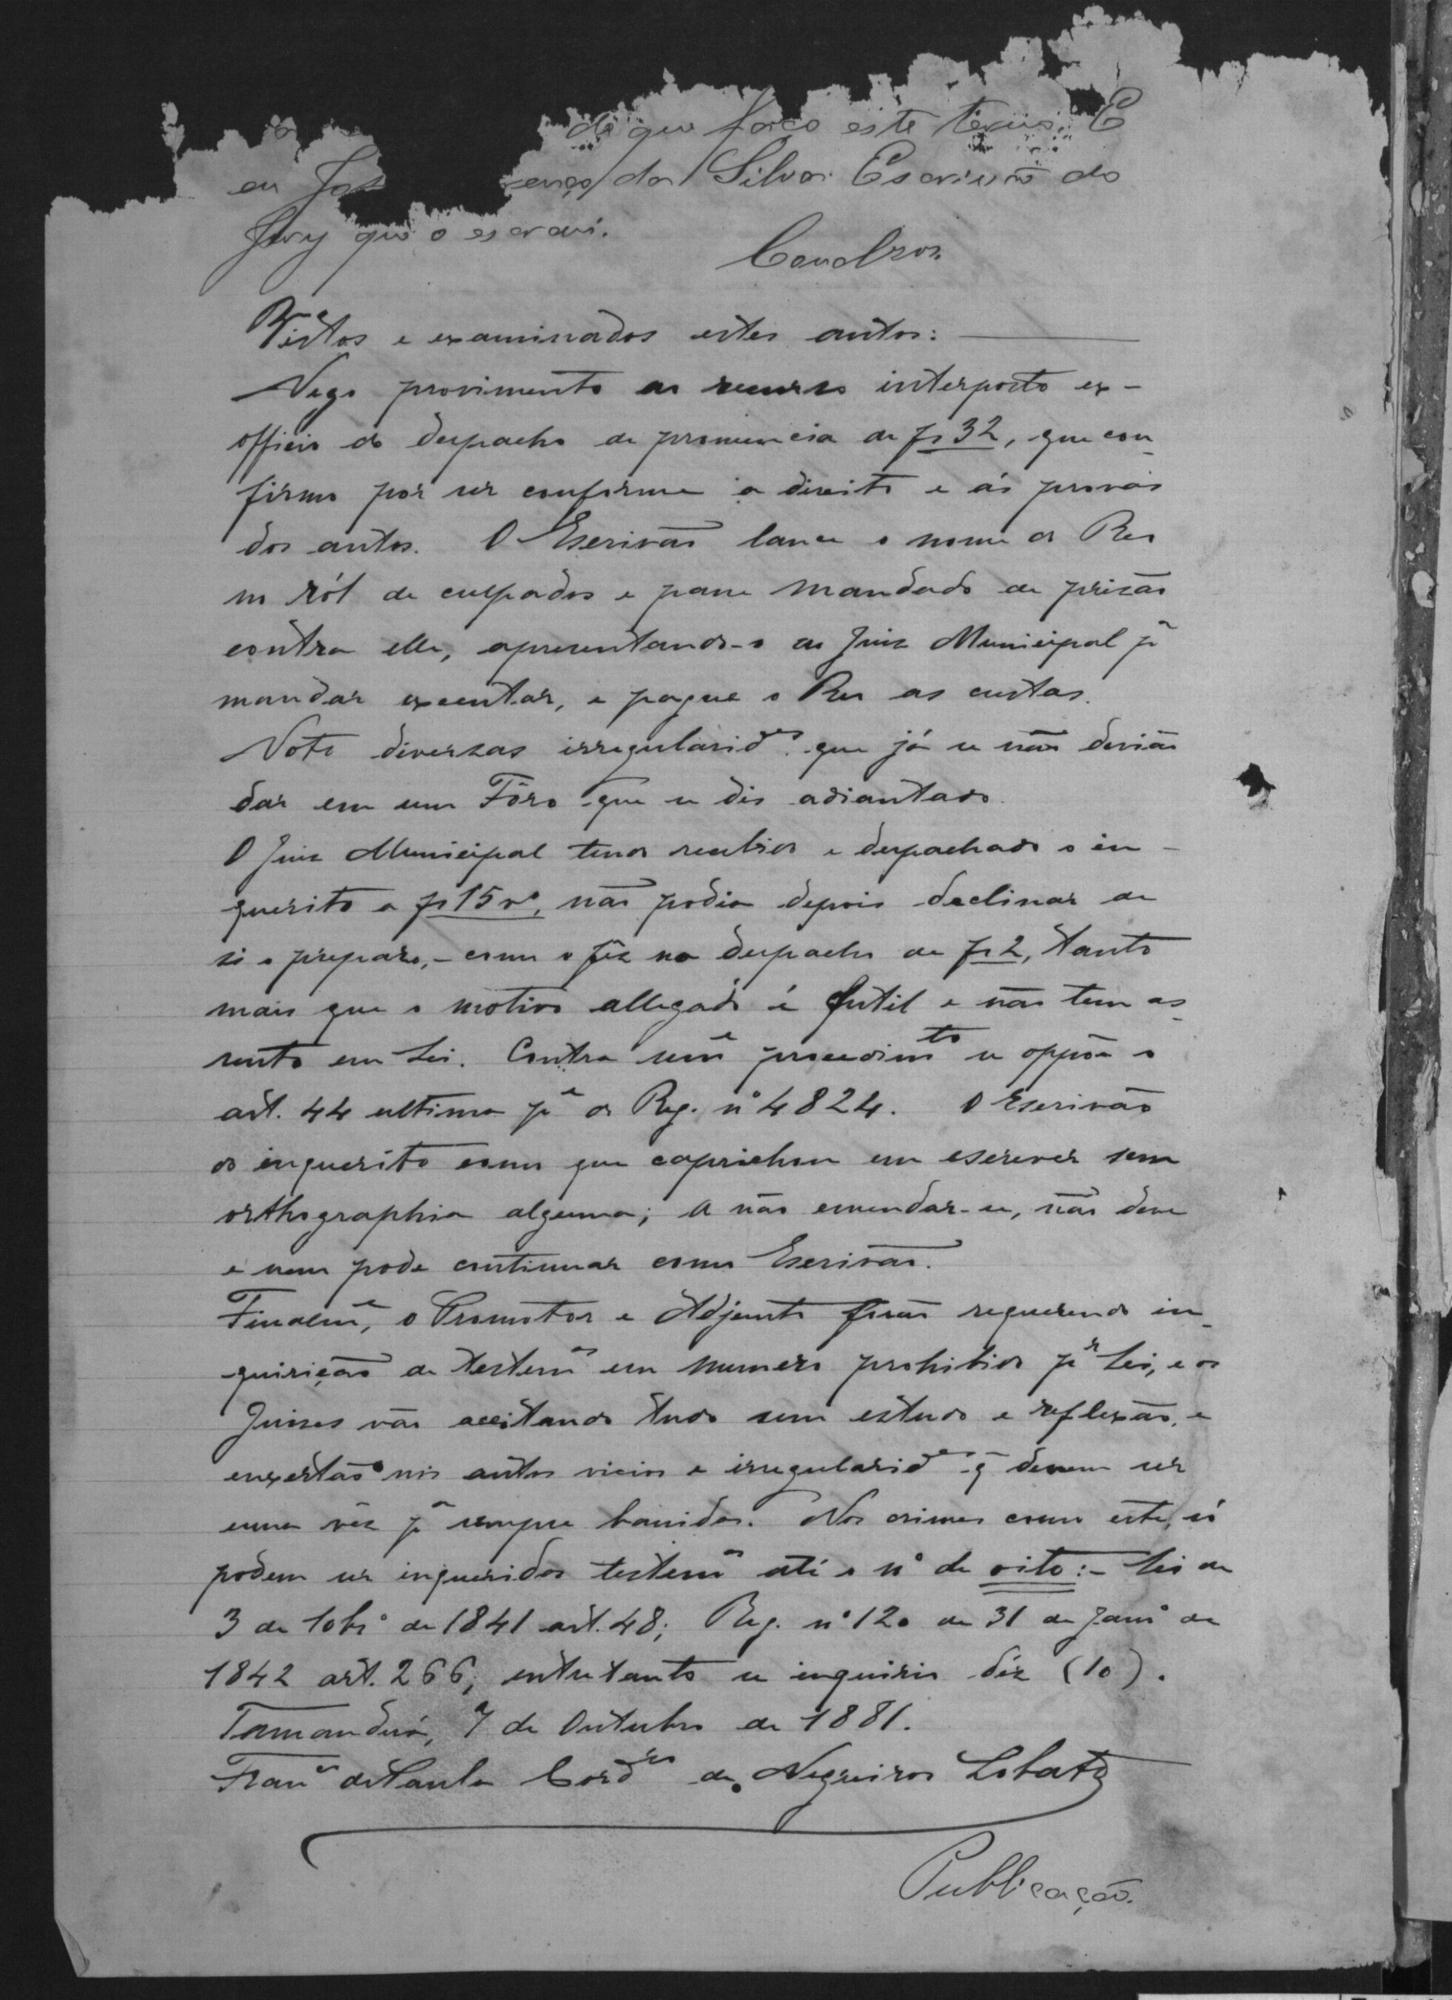 de que faço este termo. E
eu Jos da Silva Escrivão do
Jury que o escrevi.
Conclzos.
Vistos e examinados estes autos:
Nego provimento ao recurso interposto ex-
officio do despacho de pronuncia de fs 32, que con-
firmo por ser conforme a direito e ás provas
dos autos. O Escrivão lance o nome do Reo
no ról de culpados e passe mandado de prizão
contra elle, apresentando-o ao Juiz Municipal pª
mandar executar, e pague o Reo as custas.
Noto diversas irregularidᵉˢ que já se não devião
dar em um Fôro que se diz adiantado.
O Juiz Municipal tendo recebido e despachado o in-
querito a fs 15 vº, não podia depois declinar de
si o preparo, - como o fêz no despacho de fs 2, tanto
mais que o motivo allegado é futil e não tem as-
sento em Lei. Contra semᵉ procedimᵗᵒ se oppõe o
art. 44 ultima pᵉ do Reg. nº 4824. O Escrivão
do inquerito como que caprichou em escrever sem
orthographia alguma; a não emendar-se, não deve
e nem pode continuar como Escrivão.
Finalmᵉ, o Promotor e Adjunto forão requerendo in-
quirição de testemᵃˢ em numero prohibido pʳ Lei, e os
Juizes vão aceitando tudo sem estudo e reflexão, e
enxertão nos autos vicios e irregularidᵉˢ q̃ devem ser
uma vêz pª sempre banidos. Nos crimes como este, só
podem ser inqueridos testemᵃˢ até o nº de oito: - Lei de
3 de 10brº de 1841 art. 48; Reg. nº 120 de 31 de Janrº de
1842 art. 266; entretanto se inquirio déz (10).
Tamanduá, 7 de Outubro de 1881.
Franᶜᵒ de Paula Cordʳᵒ de Negreiros Lobato
Publicação.